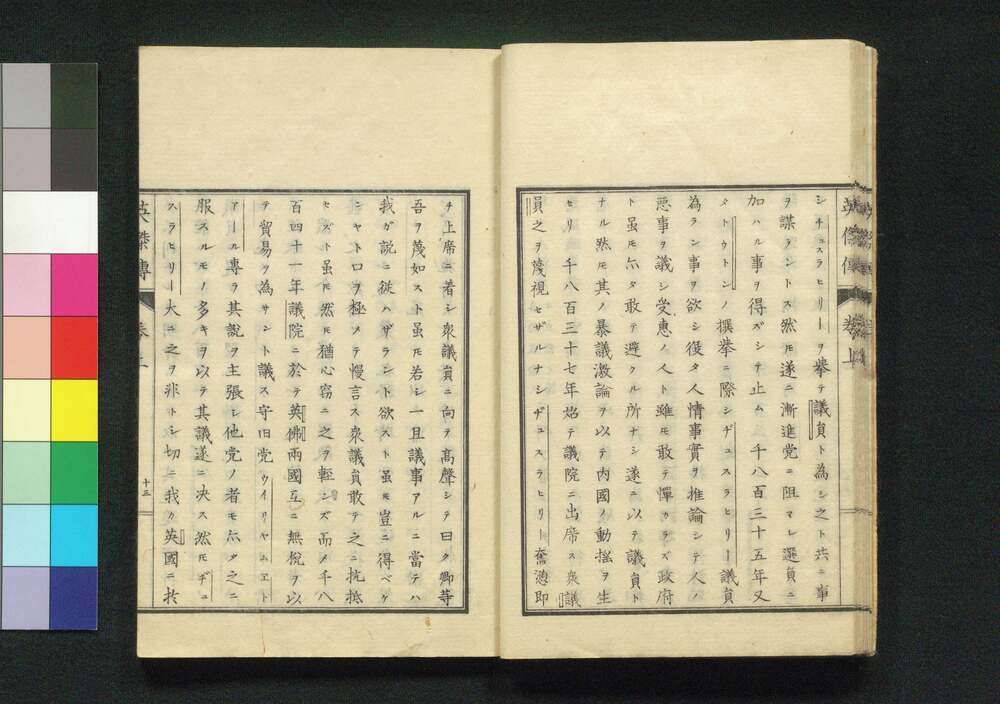 英傑傳 卷上
シヂュスラヒリーヲ挙テ議員ト為シ之ト共ニ事
ヲ謀ラントス然ルニ遂ニ漸進党ニ阻マレ選員ニ
加ハル事ヲ得ズシテ止ム 千八百三十五年又
タトウトンノ撰挙ニ際シヂュスラヒリー議員
為ラン事ヲ欲シ復タ人情事實ヲ推論シテ人ノ
悪事ヲ議シ受惠ノ人ト雖モ敢テ憚カラズ政府
ト虽モ亦タ敢テ避クル所ナシ遂ニ以テ議員ト
ナル然モ其ノ暴議激論ヲ以テ内國ノ動揺ヲ生
ヒリ 千八百三十七年始テ議院ニ出席ス衆議
員之ヲ蔑視セザルナシヂュスラヒリー奮懣即
チ上席ニ着シ衆議員ニ向ヲ高聲シテ曰ク卿等
吾ヲ蔑如スト虽モ若シ一旦議事アルニ當テハ
我ガ説ニ従ハザラント欲スト虽モ豈ニ得ベケ
ンヤト口ヲ極メテ慢言ス衆議員敢テ之ニ抗抵
セズト虽モ然モ猶心窃ニ之ヲ軽ンズ而メ千八
百四十一年議院ニ於テ英佛兩國互ニ無税ヲ以
テ貿易ヲ為サント議ス守旧党ウイリヤムヱト
アール專ラ其説ヲ主張シ他党ノ者モ亦タ之ニ
服スルモノ多キヲ以テ其議遂ニ决ス然モヂュ
スラヒリー大ニ之ヲ非トシ切ニ我カ英國ニ於
英傑傳 卷上 十三